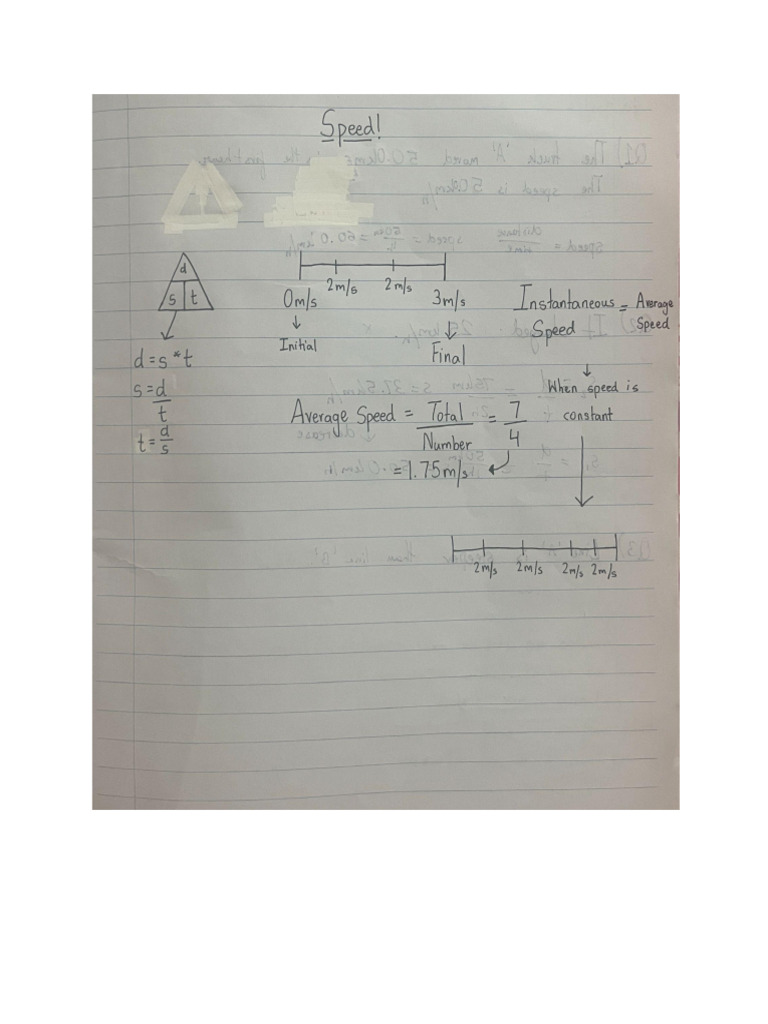 Speed!
d
s t
d = s * t
s = d/t
t = d/s
2m/s 2m/s
0m/s 3m/s
Initial Final
Average Speed = Total/Number = 7/4
= 1.75m/s
Instantaneous Speed = Average Speed
When speed is
constant
2m/s 2m/s 2m/s 2m/s